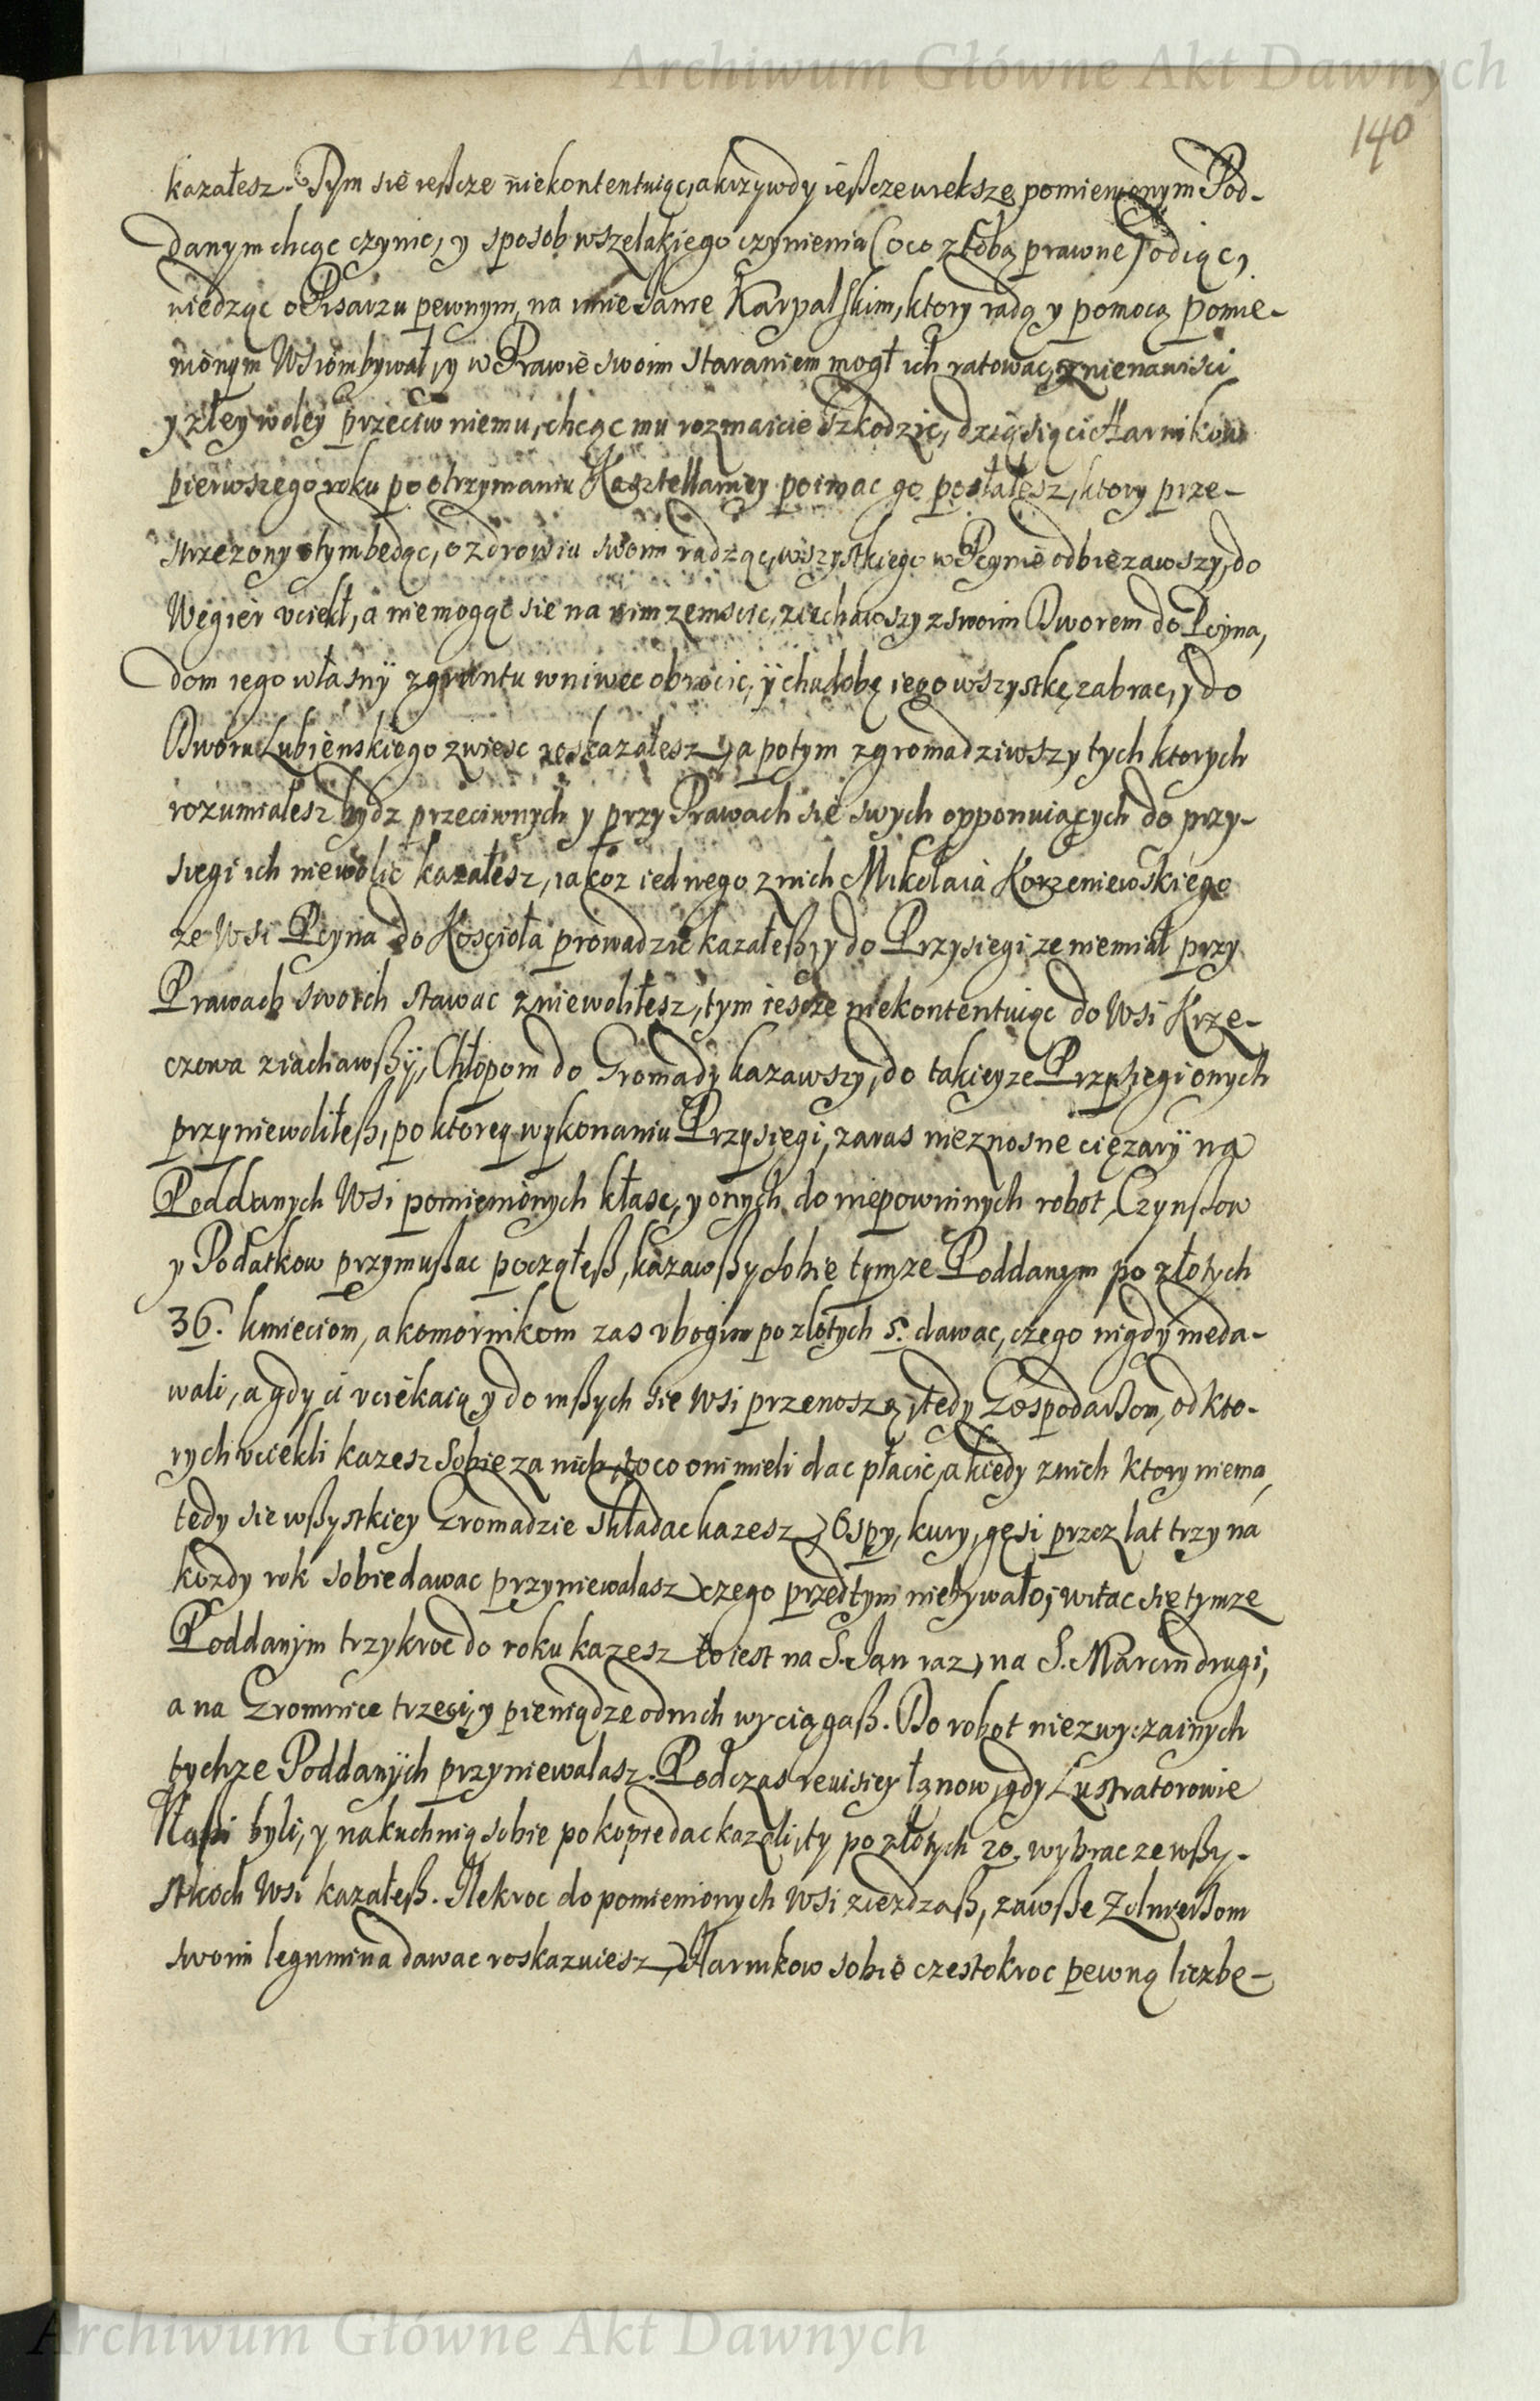 Archiwum Główne Akt Dawnych
140
kazałesz. Tym się ießcze niekontentuiąc, a krzywdy ießcze większe pomienionym Pod-
danym chcąc czynic, y sposob wszelakiego czynienia (oco z tobą prawne) odiąc,
wiedząc o Pisarzu pewnym, na imie Janie Karpalskim, ktory radą y pomocą pomie-
nionym Wsiom bywał, y w Prawie swoim staraniem mogł ich ratowac, z nienawisci
y złey woley przeciw niemu, chcąc mu rozmaicie szkodzic, dziesiąci Harnikow
pierwszego roku po otrzymaniu Kasztellaniey poimac go posłałesz, ktory prze-
strzezony o tym będąc, o zdrowiu swoim radząc, wszystkiego w Pcymie odbiezawszy, do
Węgier vciekł, a niemogąc sie na nim zemscic, ziechawszy z swoim Dworem do Pcyna,
dom iego własny z gruntu wniwec obrocic, y chudobę iego wszystkę zabrac, y do
Dworu Lubienskiego zwiesc roskazałesz, a potym zgromadziwszy tych ktorych
rozumiałesz bydz przeciwnych y przy Prawach się swych opponuiących do przy-
sięgi ich niewolic kazałesz, iakoz iednego z nich Mikołaia Korzeniewskiego
ze Wsi Pcyna do Kosçioła prowadzic kazałeß, y do Przysięgi ze niemiał przy
Prawach swoich stawac zniewoliłesz, tym iescze niekontentuiąc do Wsi Krze-
czowa ziachawßy, Chłopom do Gromady kazawszy, do takieyze Przysięgi onych
przyniewoliłeß, po ktorey wykonaniu Przysięgi, zaras nieznosne cięzary na
Poddanych Wsi pomienionych kłasc, y onych do niepowinnych robot, Czynszow
y Podatkow przymußac począłeß, kazawßy sobie tymze Poddanym po złotych
36. kmieciom, a komornikom zas vbogim po złotych 5. dawac, czego nigdy nieda-
wali, a gdy ci vciekaią y do inßych sie Wsi przenoszą, tedy Gospodarßom, od kto-
rych vciekli kazesz sobie za nich, to co oni mieli dac płacic, a kiedy z nich ktory niema,
tedy sie wßystkiey Gromadzie składac kazesz, Ospy, kury, gęsi przez lat trzy na
kozdy rok sobie dawac przyniewalasz, czego przedtym niebywało, witac się tymze
Poddanym trzykroc do roku kazesz to iest na S. Jan raz, na S. Marcin drugi,
a na Gromnice trzeci, y pieniądze od nich wyciągaß. Do robot niezwyczainych
tychze Poddanych przyniewalasz. Podczas reuisiey łanow, gdy Lustratorowie
Naßi byli, y na kuchnią sobie po kopie dac kazali, ty po złotych 20. wybrac ze wßy-
stkich Wsi kazałeß. Ilekroc do pomienionych Wsi ziezdzaß, zawße Zolnierßom
swoim legumina dawac roskazuiesz, Harnikow sobie czestokroc pewną liczbę
Archiwum Główne Akt Dawnych